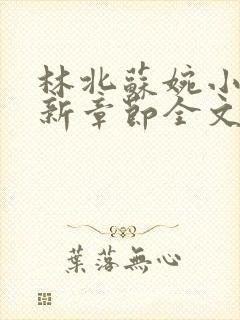 林北蘇婉小
新章節全文
葉落無心